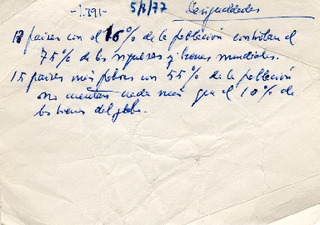 -1.291-
5/8/77
Desigualdades
18 países con el 16% de la población controlan el
75% de las riquezas y bienes mundiales.
15 países más pobres con 55% de la población
no cuentan nada más que el 10% de
los bienes del globo.